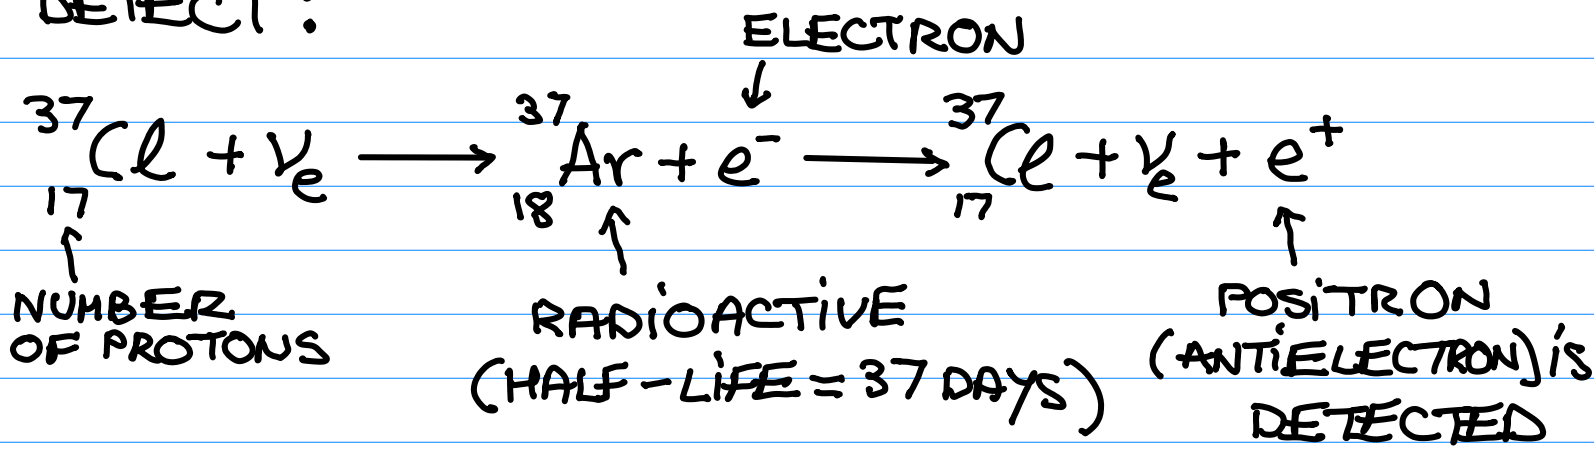 DETECT:
ELECTRON
³⁷₁₇Cl + νₑ ⟶ ³⁷₁₈Ar + e⁻ ⟶ ³⁷₁₇Cl + νₑ + e⁺
NUMBER
OF PROTONS
RADIOACTIVE
(HALF-LIFE = 37 DAYS)
POSITRON
(ANTIELECTRON) IS
DETECTED